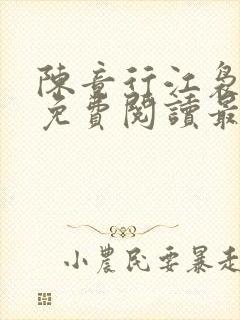 陳音行江裊
免費閱讀最
小農民要暴走